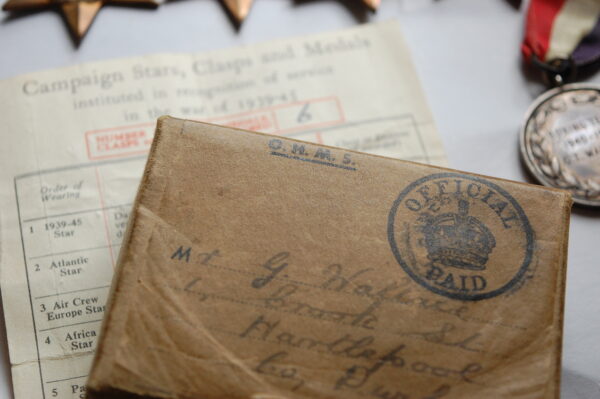 Campaign Stars, Clasps and Medals
instituted in recognition of service
in the war of 1939-45
NUMBER
CLASPS
6
Order of
Wearing
1 1939-45
Star
2 Atlantic
Star
3 Air Crew
Europe Star
4 Africa
Star
5 Pa
O.H.M.S.
OFFICIAL
PAID
Mr G Wallace
Brook St.
Hartlepool
Co,